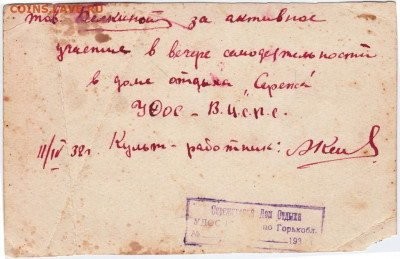 COINS.SU
тов. Белкиной за активное
участие в вечере самодеятельности
в доме отдыха „Сережа"
УДОС - В.Ц.С.П.С.
11/IV 38г. Культ-работник:
Дом Отдыха
УДОС по Горькобл.
№ 193